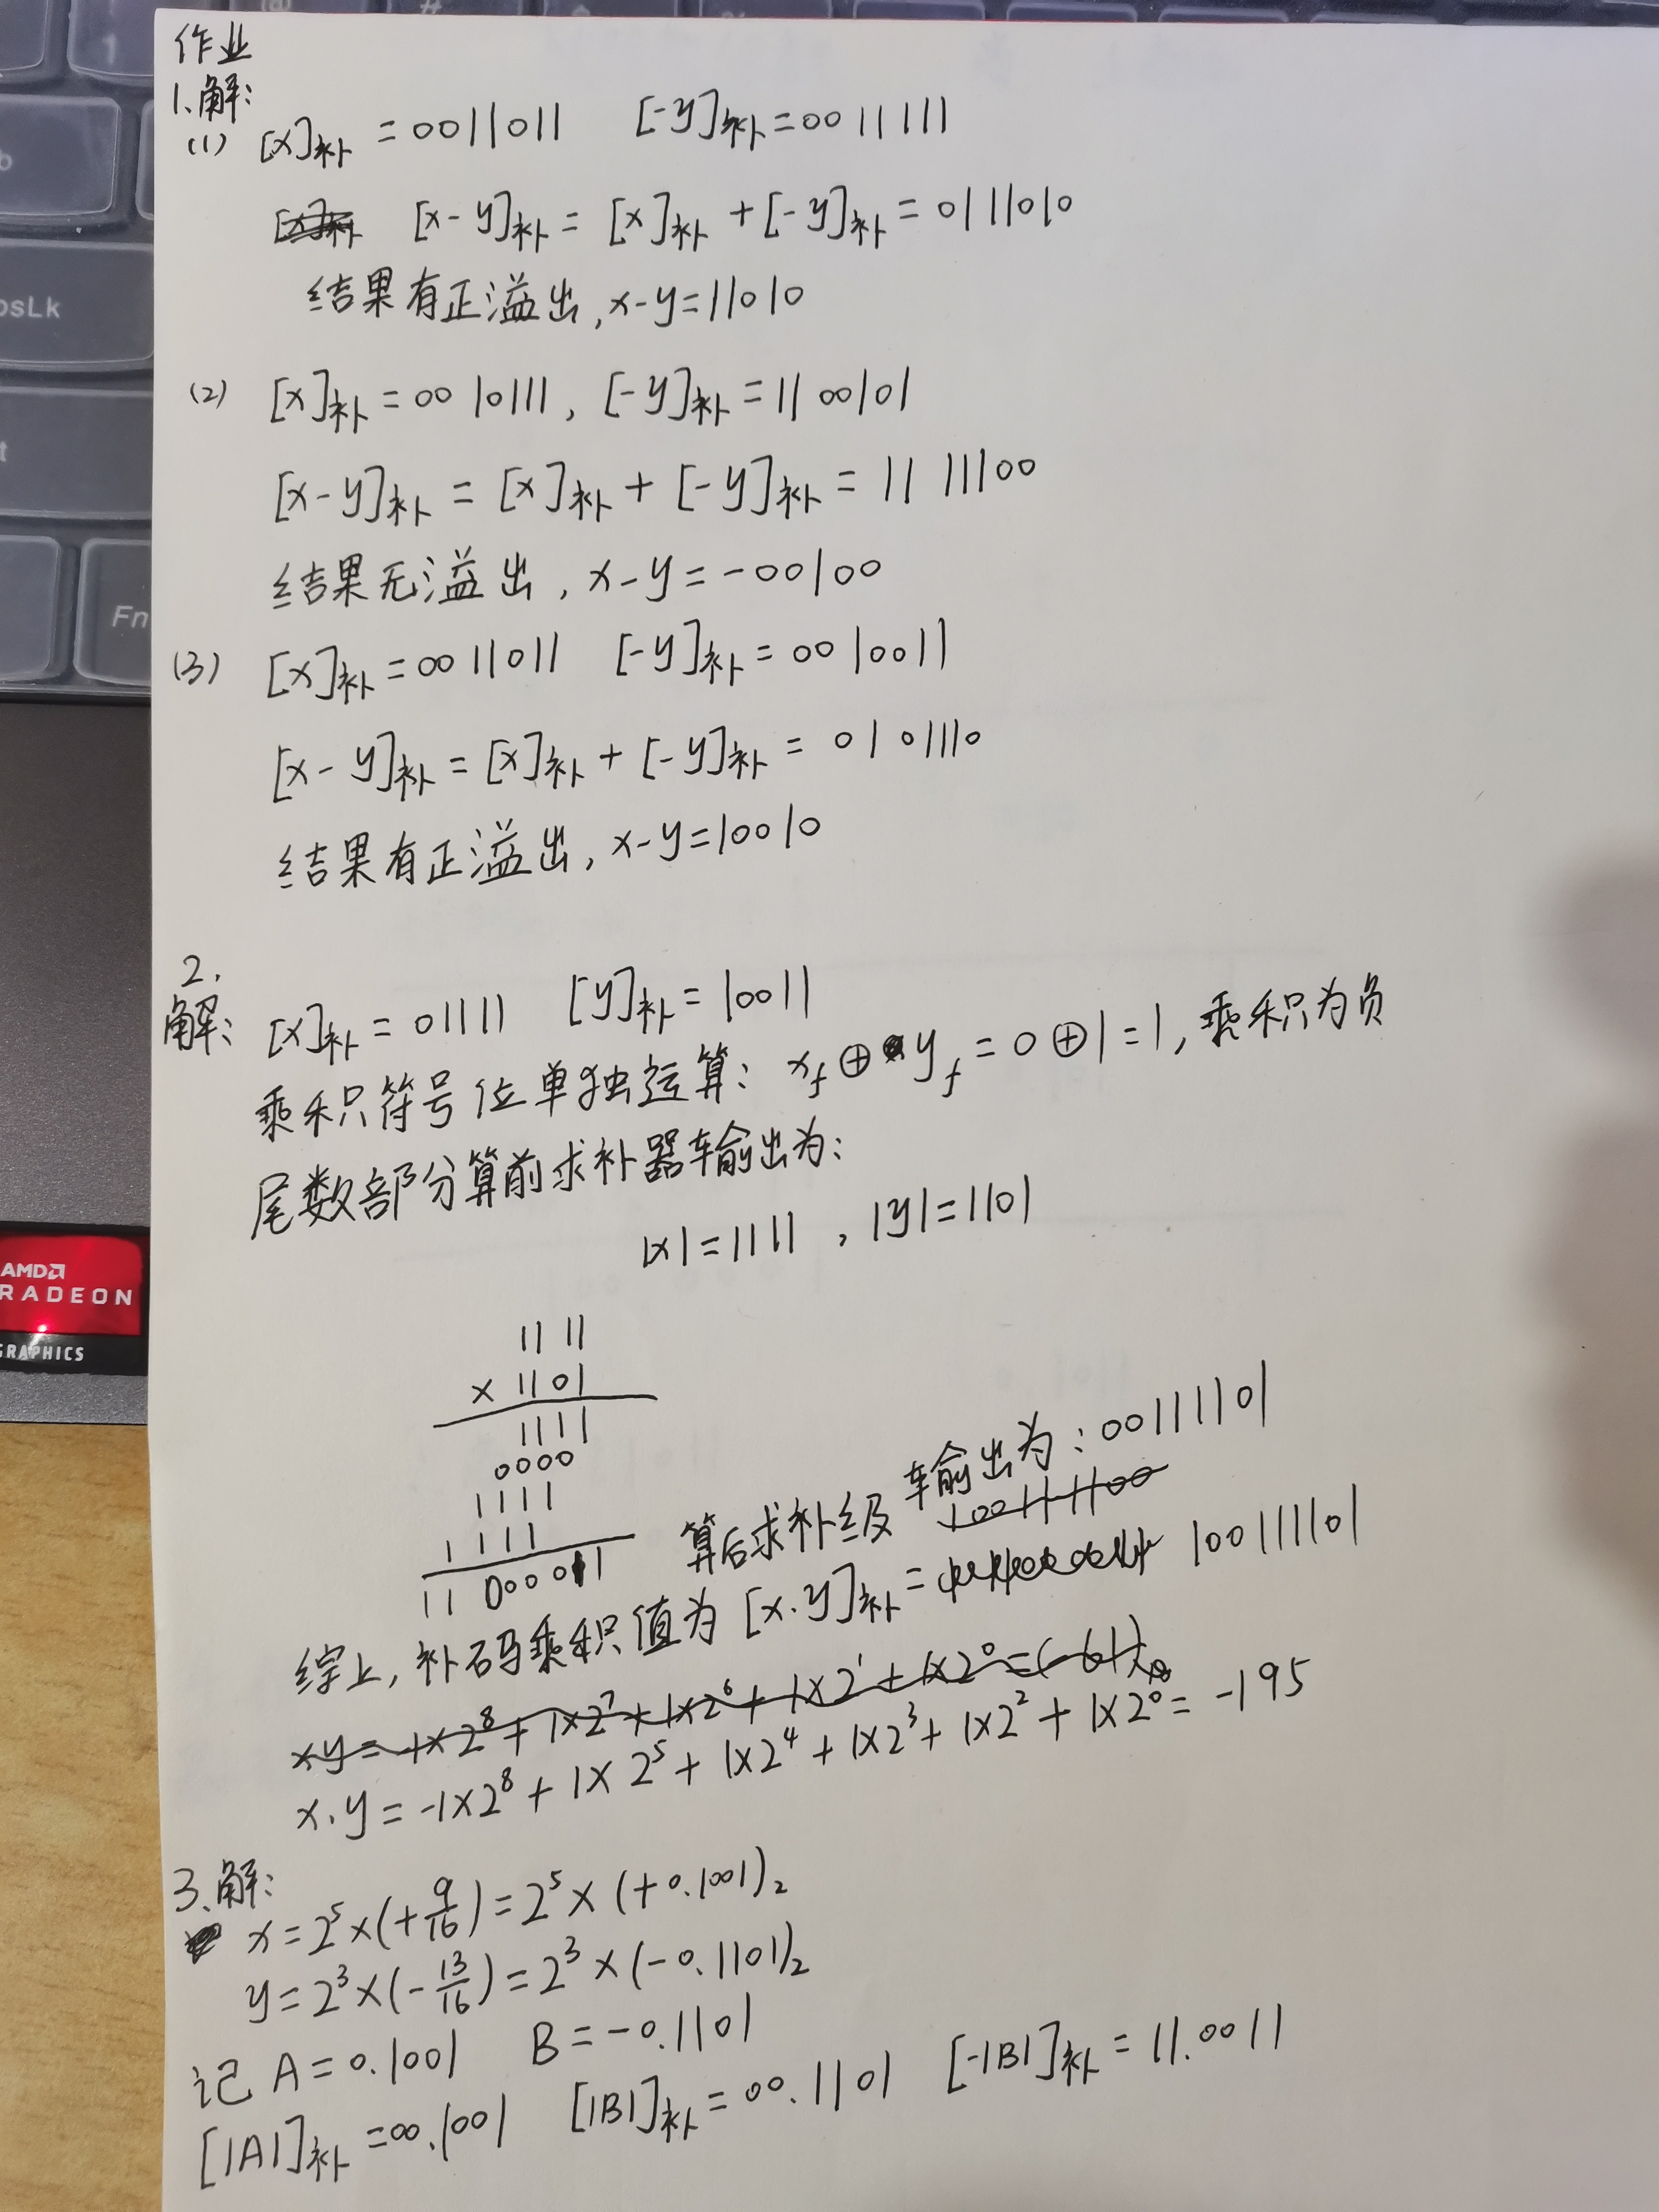 作业
1、解:
(1) [x]补 = 0011011 [-y]补 = 0011111
[x-y]补 = [x]补 + [-y]补 = 0111010
结果有正溢出, x-y=11010
(2) [x]补 = 00 10111, [-y]补 = 11 00101
[x-y]补 = [x]补 + [-y]补 = 11 11100
结果无溢出, x-y = -00100
(3) [x]补 = 00 11011 [-y]补 = 00 10011
[x-y]补 = [x]补 + [-y]补 = 01 01110
结果有正溢出, x-y=10010
2.
解: [x]补 = 01111 [y]补 = 10011
乘积符号位单独运算: xf ⊕ yf = 0 ⊕ 1 = 1, 乘积为负
尾数部分算前求补器输出为:
|x| = 1111 , |y| = 1101
11 11
× 1101
1111
0000
1111
1111
11 000011
算后求补级输出为: 00111101
10011 1100
综上, 补码乘积值为 [x.y]补 = 100111101
xy = -1×2⁸ + 1×2⁷ + 1×2⁶ + 1×2¹ + 1×2⁰ = (-61)
x.y = -1×2⁸ + 1×2⁵ + 1×2⁴ + 1×2³ + 1×2² + 1×2⁰ = -195
3、解:
x = 2⁵×(+9/16) = 2⁵×(+0.1001)₂
y = 2³×(-13/16) = 2³×(-0.1101)₂
记 A = 0.1001 B = -0.1101
[|A|]补 = 00.1001 [|B|]补 = 00.1101 [-|B|]补 = 11.0011
osLk
Fn
AMD
RADEON
GRAPHICS